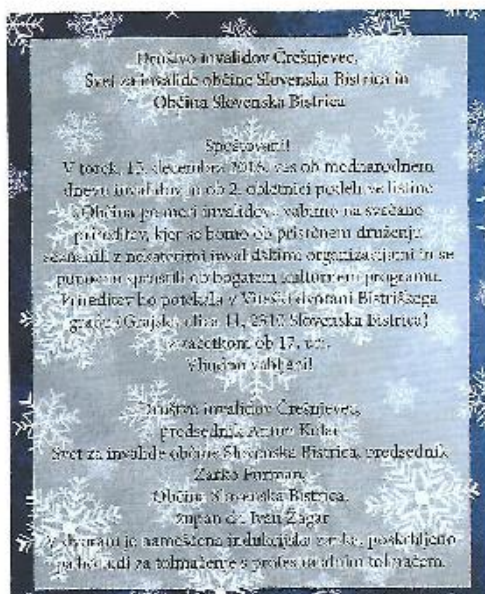 Društvo invalidov Črešnjevec,
Svet za invalide občine Slovenska Bistrica in
Občina Slovenska Bistrica
Spoštovani!
V torek, decembra vas ob mednarodnem
dnevu invalidov in ob 2. obletnici podelitve listine
Občina po meri invalidov vabimo na svečano
prireditev, kjer se bomo ob prisrčnem druženju
seznanili z nekaterimi invalidskimi organizacijami in se
sprostili ob bogatem kulturnem programu.
Prireditev bo potekala v Viteški dvorani Bistriškega
gradu (Grajska ulica 11, 2310 Slovenska Bistrica)
z začetkom ob 17. uri.
Vljudno vabljeni!
Društvo invalidov Črešnjevec,
predsednik Anton
Svet za invalide občine Slovenska Bistrica, predsednik
Žarko Furman,
Občina Slovenska Bistrica,
župan dr. Ivan Žagar
V dvorani je nameščena indukcijska zanka, poskrbljeno
pa bo tudi za tolmačenje s profesionalnim tolmačem.